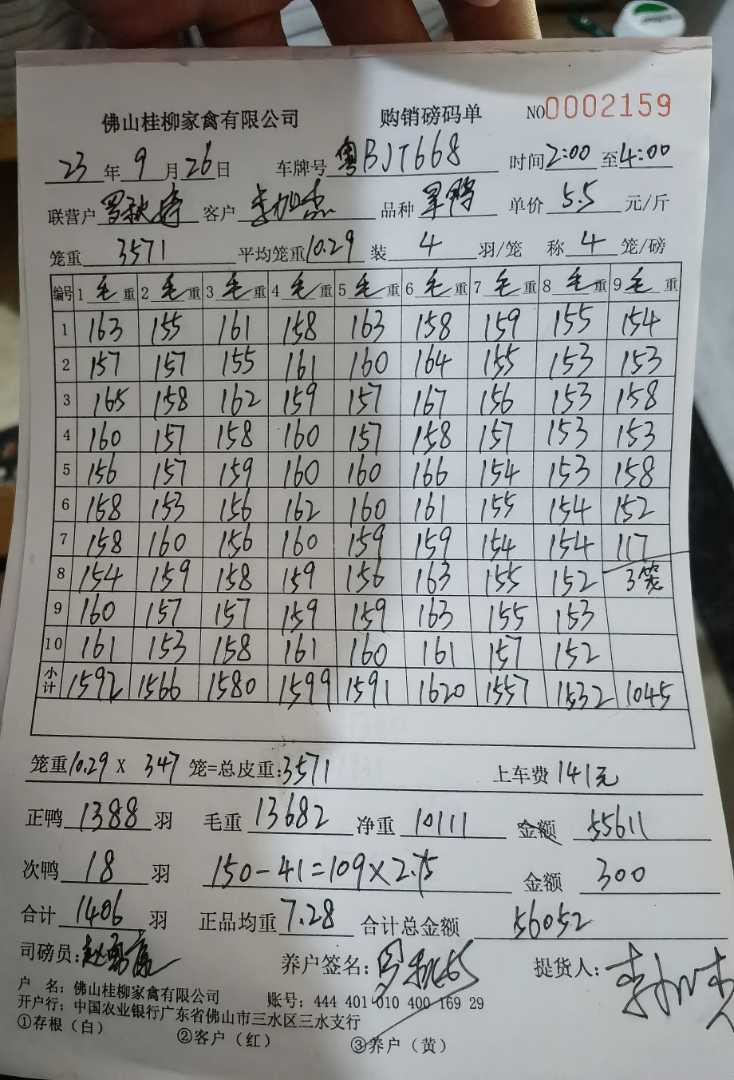 佛山桂柳家禽有限公司 购销磅码单 NO0002159
23年9月26日 车牌号粤BJT668 时间2:00至4:00
联营户 罗 客户 李加杰 品种 单价5.5元/斤
笼重3571 平均笼重10.29装4羽/笼 称4笼/磅
编号 1毛重 2毛重 3毛重 4毛重 5毛重 6毛重 7毛重 8毛重 9毛重
1 163 155 161 158 163 158 159 155 154
2 157 157 155 161 160 164 155 153 153
3 165 158 162 159 157 167 156 153 158
4 160 157 158 160 157 158 157 153 153
5 156 157 159 160 160 166 154 153 158
6 158 153 156 162 160 161 155 154 152
7 158 160 156 160 159 159 154 154 117
8 154 159 158 159 156 163 155 152 3笼
9 160 157 157 159 159 163 155 153
10 161 153 158 161 160 161 157 152
小计 1592 1566 1580 1599 1591 1620 1557 1532 1045
笼重10.29 X 347笼=总皮重:3571 上车费141元
正鸭1388羽 毛重13682 净重10111 金额55611
次鸭18羽 150-41=109×2.75 金额300
合计1406羽 正品均重7.28 合计总金额56052
司磅员: 养户签名:罗 提货人:李加杰
户 名:佛山桂柳家禽有限公司 账号:444 401 010 400 169 29
开户行:中国农业银行广东省佛山市三水区三水支行
①存根(白) ②客户(红) ③养户(黄)